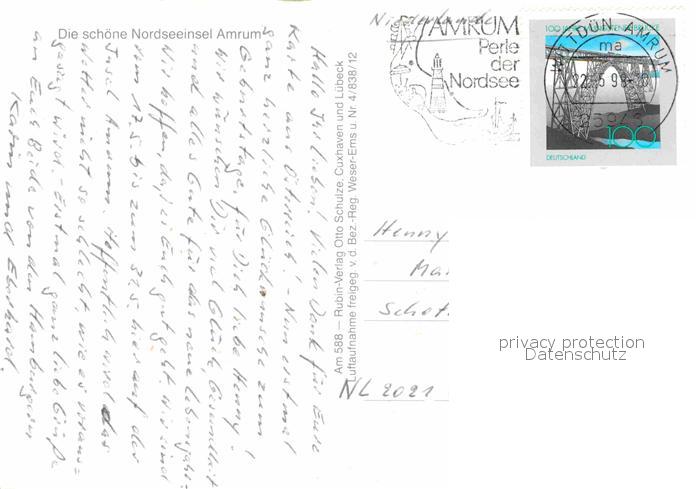 Die schöne Nordseeinsel Amrum
Hallo Ihr Lieben! Vielen Dank für Eure
Karte aus Österreich! - Nun erstmal
ganz herzliche Glückwünsche zum
Geburtstage, für Dich liebe Henny!
Wir wünschen Dir viel Glück, Gesundheit
und alles Gute für das neue Lebensjahr.-
Wir hoffen, daß es Euch gut geht. Wir sind
vom 17.5. bis zum 3.25. hier auf der
Insel Amrum. Hoffentlich wird das
Wetter nicht so schlecht, wie es voraus=
gesagt wird. - Erstmal ganz liebe Grüße
an Euch Beide von den Hamburgern
Karin und Eberhard.
Am 588 — Rubin-Verlag Otto Schulze, Cuxhaven und Lübeck
Luftaufnahme freigeg. v. d. Bez.-Reg. Weser-Ems u. Nr. 4/838/12
Niederlande
AMRUM
Perle
der
Nordsee
WITTDÜN, AMRUM
ma
22.5.98
25943
100
DEUTSCHLAND
Henny
Ma
Schot
NL 2021
privacy protection
Datenschutz